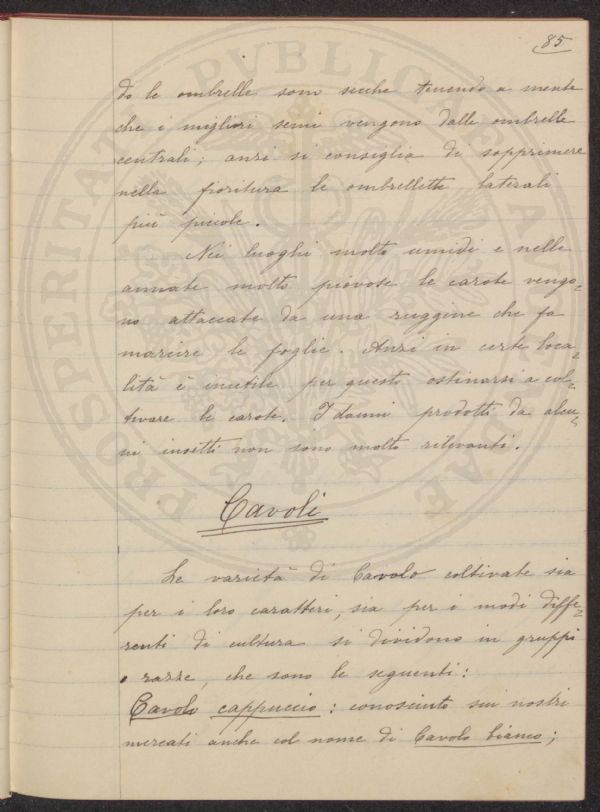 85
do le ombrelle sono secche tenendo a mente
che i migliori semi vengono dalle ombrelle
centrali; anzi si consiglia di sopprimere
nella fioritura le ombrellette laterali
più piccole.
Nei luoghi molto umidi e nelle
annate molto piovose le carote vengo-
no attaccate da una ruggine che fa
marcire le foglie. Anzi in certe loca-
lità è inutile per questo ostinarsi a col-
tivare le carote. I danni prodotti da alcu-
ni insetti non sono molto rilevanti.
Cavoli
Le varietà di Cavolo coltivate sia
per i loro caratteri, sia per i modi diffe-
renti di cultura si dividono in gruppi
o razze, che sono le seguenti:
Cavolo cappuccio: conosciuto sui nostri
mercati anche col nome di Cavolo bianco;
PROSPERITATI PUBLICAE AUGENDAE